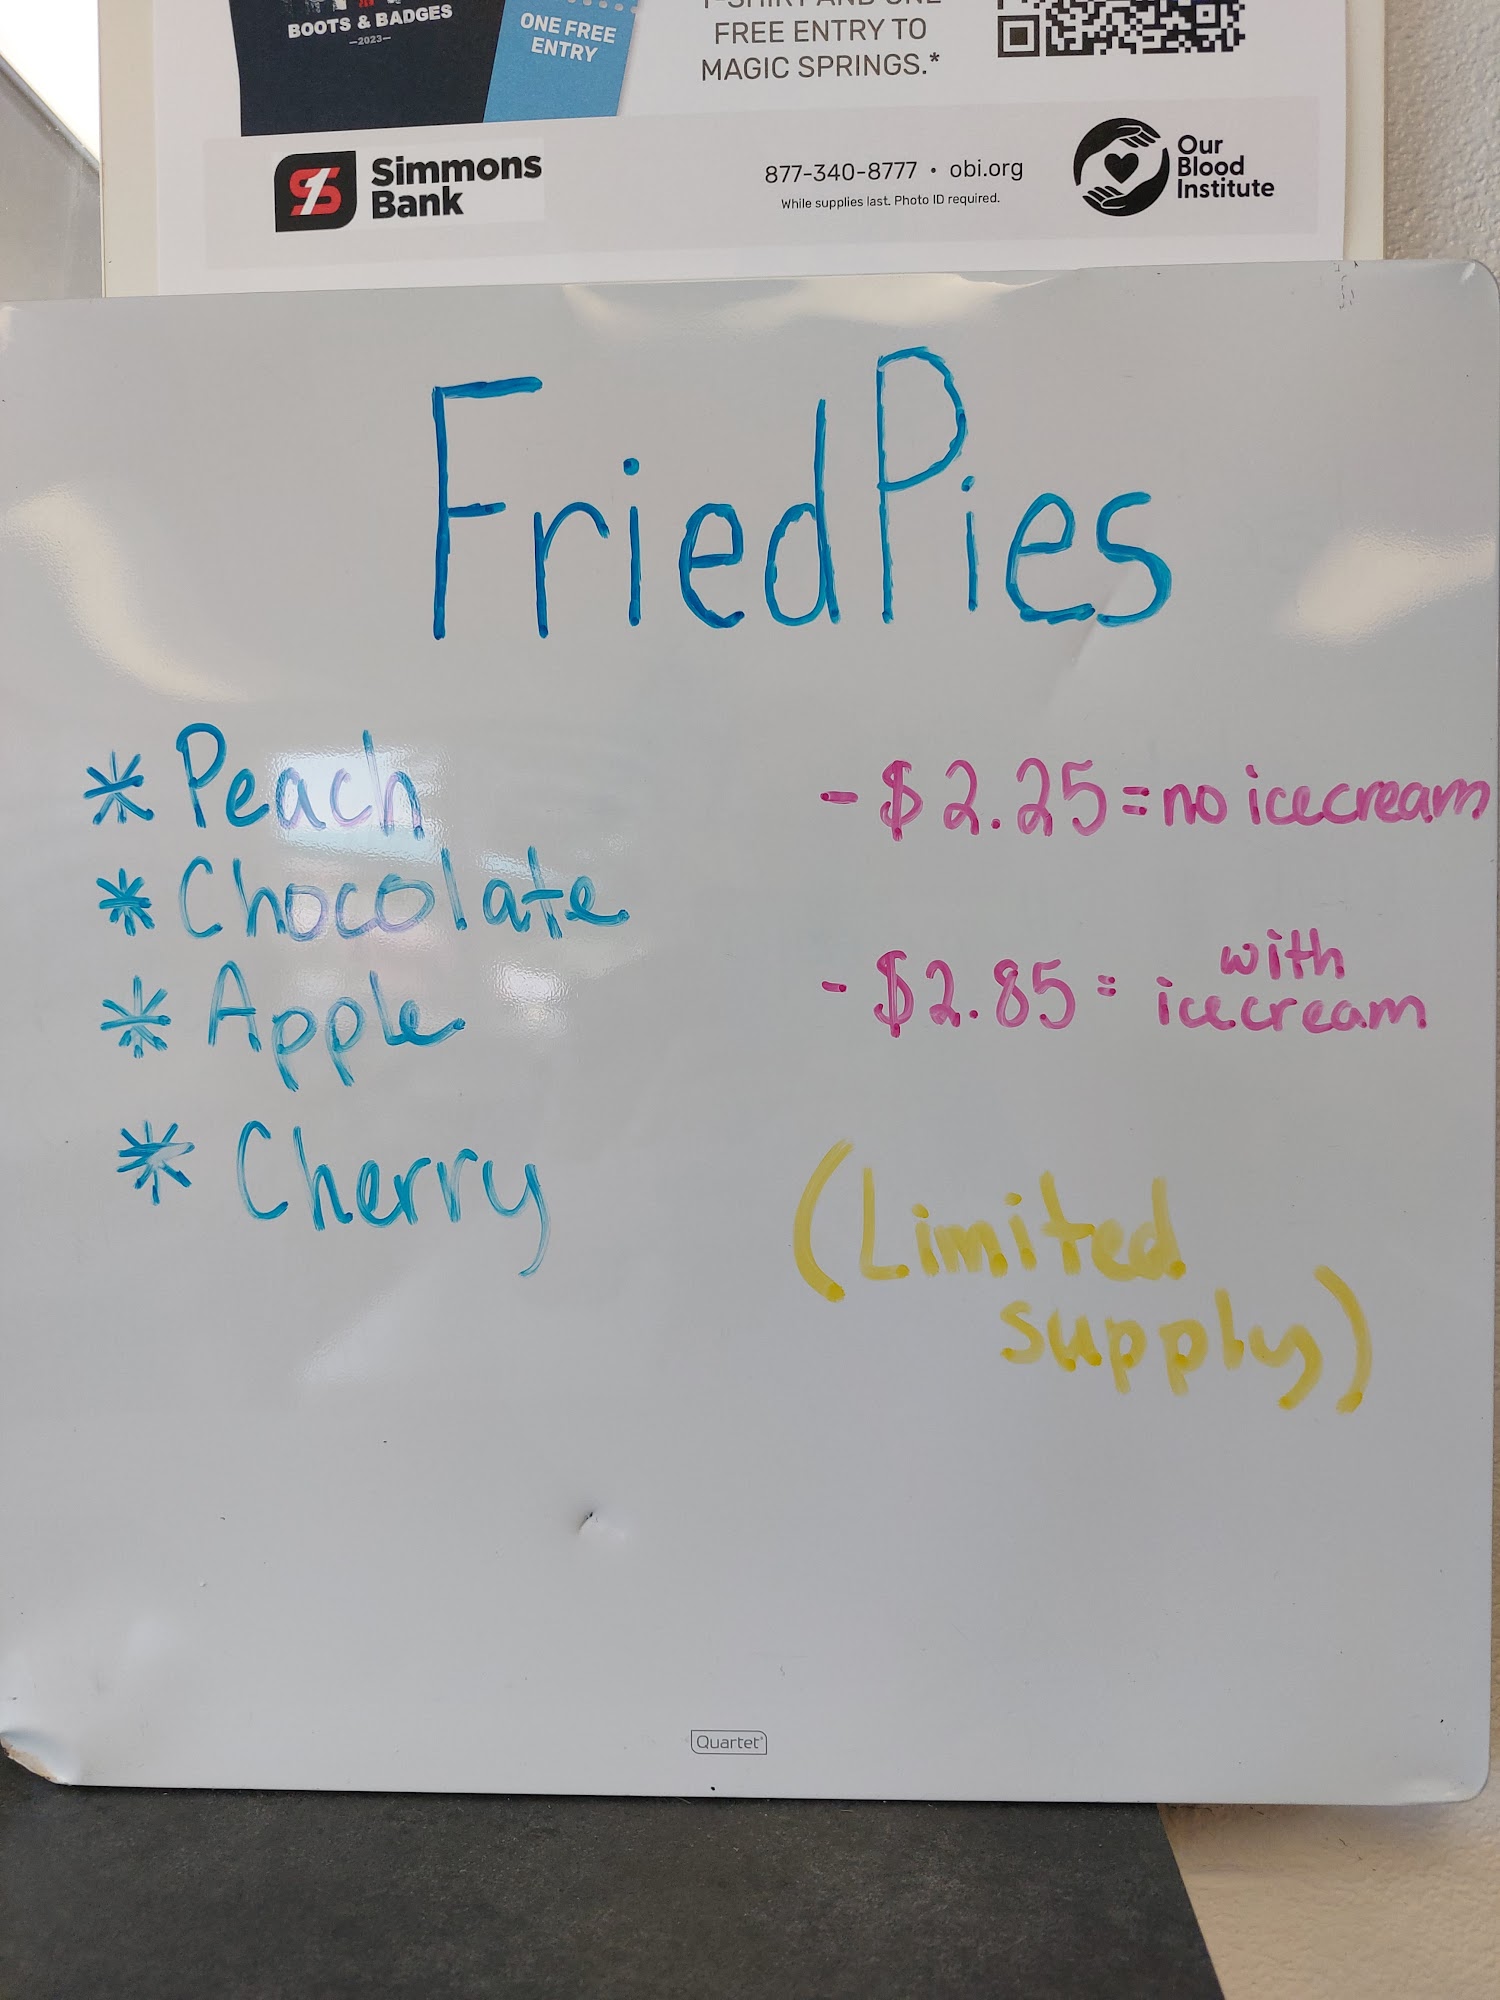 BOOTS & BADGES
—2023—
ONE FREE
ENTRY
T-SHIRT AND ONE
FREE ENTRY TO
MAGIC SPRINGS.*
Simmons
Bank
877-340-8777 • obi.org
While supplies last. Photo ID required.
Our
Blood
Institute
Fried Pies
* Peach
* Chocolate
* Apple
* Cherry
- $2.25 = no icecream
- $2.85 = with
icecream
(Limited
supply)
Quartet